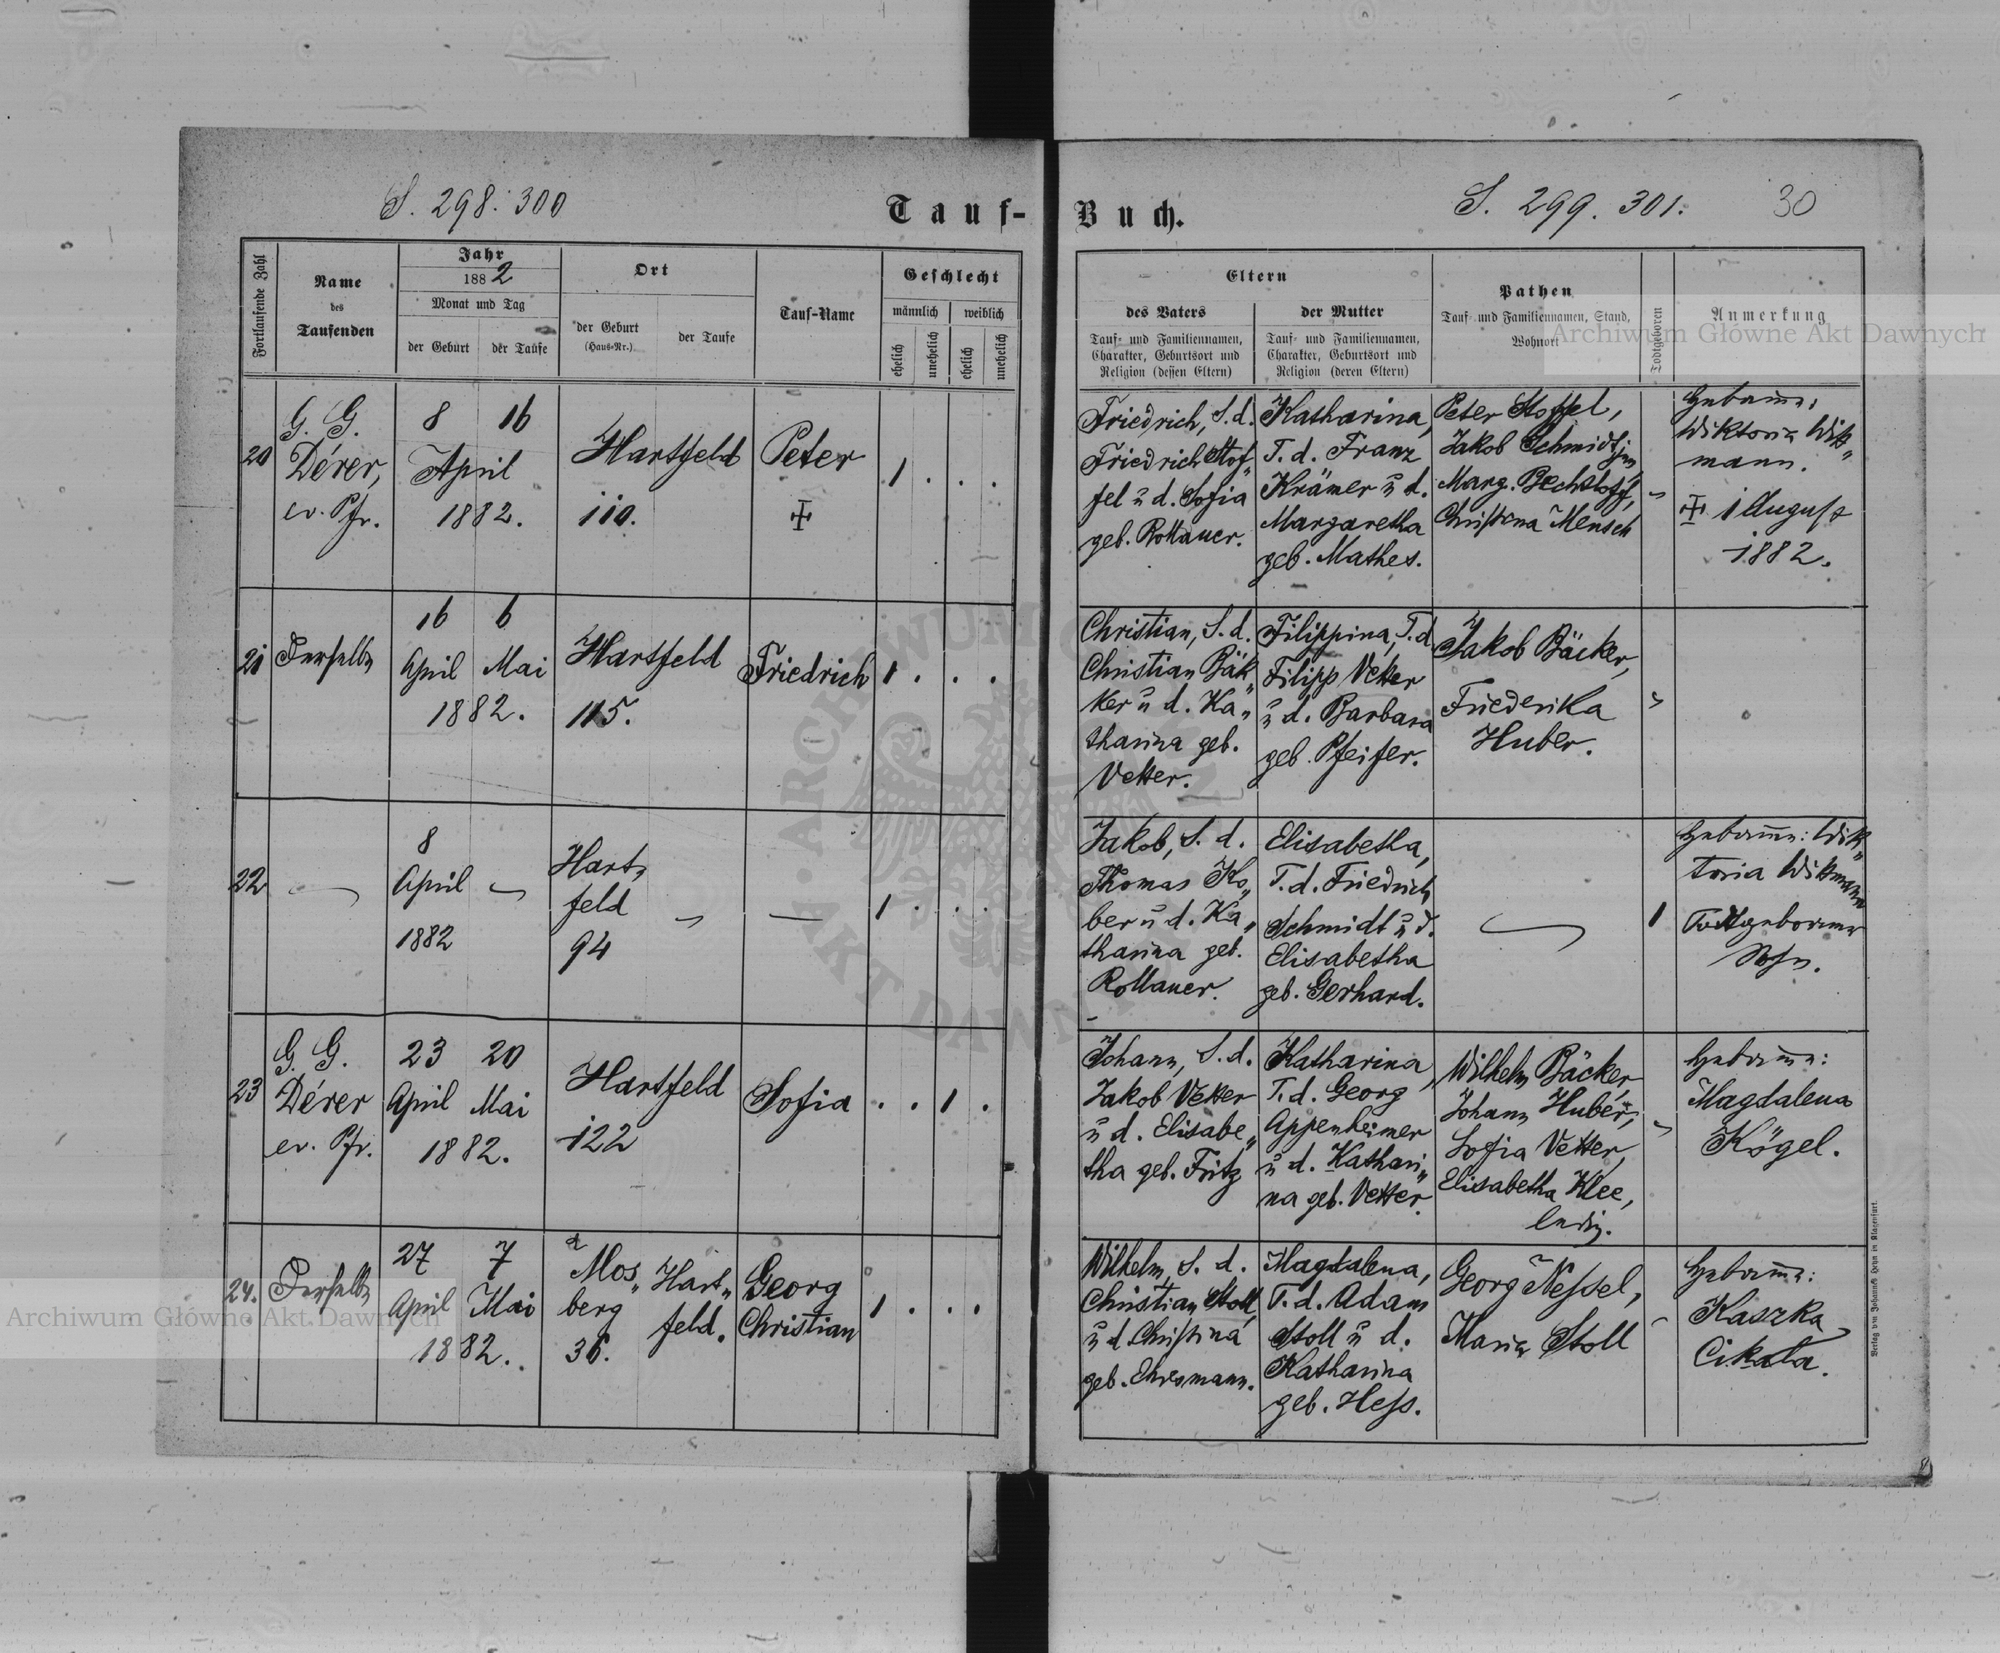 S. 298. 300
Tauf-
Buch.
S. 299. 301.
30
Fortlaufende Zahl
Name
des
Taufenden
Jahr
1882
Monat und Tag
der Geburt
der Taufe
Ort
der Geburt
(Haus-Nr.)
der Taufe
Tauf-Name
Geschlecht
männlich
weiblich
ehelich
unehelich
ehelich
unehelich
Eltern
des Vaters
Tauf- und Familiennamen,
Charakter, Geburtsort und
Religion (dessen Eltern)
der Mutter
Tauf- und Familiennamen,
Charakter, Geburtsort und
Religion (deren Eltern)
Pathen
Tauf- und Familiennamen, Stand,
Wohnort
Todtgeboren
Anmerkung
Archiwum Główne Akt Dawnych
20
G. G.
Dérer,
ev. Pfr.
8 16
April
1882.
Hartfeld
110.
Peter
1 . . .
Friedrich, S. d.
Friedrich Stof„
fel u d. Sofia
geb. Rollauer.
Katharina,
T. d. Franz
Krämer u d.
Margaretha
geb. Mathes.
Peter Stoffel,
Jakob Schmidt jun,
Marg. Bechtloff,
Christina Mensch
Hebamme:
Wiktoria Witt„
mann.
1 August
1882.
21
Derselbe
16 6
April Mai
1882.
Hartfeld
115.
Friedrich
1 . . .
Christian, S. d.
Christian Bäk„
ker u d. Ka„
tharina geb.
Vetter.
Filippina, T. d.
Filipp Vetter
u d. Barbara
geb. Pfeifer.
Jakob Bäcker,
Friederika
Huber.
22
8
April
1882
Hart„
feld
94
1 . . .
Jakob, S. d.
Thomas Ko„
ber u d. Ka„
tharina geb.
Rollauer.
Elisabetha,
T. d. Friedrich
Schmidt u d.
Elisabetha
geb. Gerhard.
1
Hebamme: Wik„
toria Wittmann
Todtgeborener
Sohn.
23
G. G.
Dérer
ev. Pfr.
23 20
April Mai
1882.
Hartfeld
122
Sofia
. . 1 .
Johann, S. d.
Jakob Vetter
u d. Elisabe„
tha geb. Fritz
Katharina,
T. d. Georg
Appenheimer
u d. Kathari„
na geb. Vetter.
Wilhelm Bäcker,
Johann Huber,
Sofia Vetter,
Elisabetha Klee,
ledig.
Hebamme:
Magdalena
Kögel.
24.
Derselbe
27 7
April Mai
1882.
Mos„
berg
36.
Hart„
feld.
Georg
Christian
1 . . .
Wilhelm, S. d.
Christian Stoll
u d. Christina
geb. Ehresmann.
Magdalena,
T. d. Adam
Stoll u d.
Katharina
geb. Hess.
Georg Nessel,
Maria Stoll
Hebamme:
Kaszka
Cikala.
Archiwum Główne Akt Dawnych
ARCHIWUM
AKT DAWN
Verlag von Johannes Heyn in Klagenfurt.